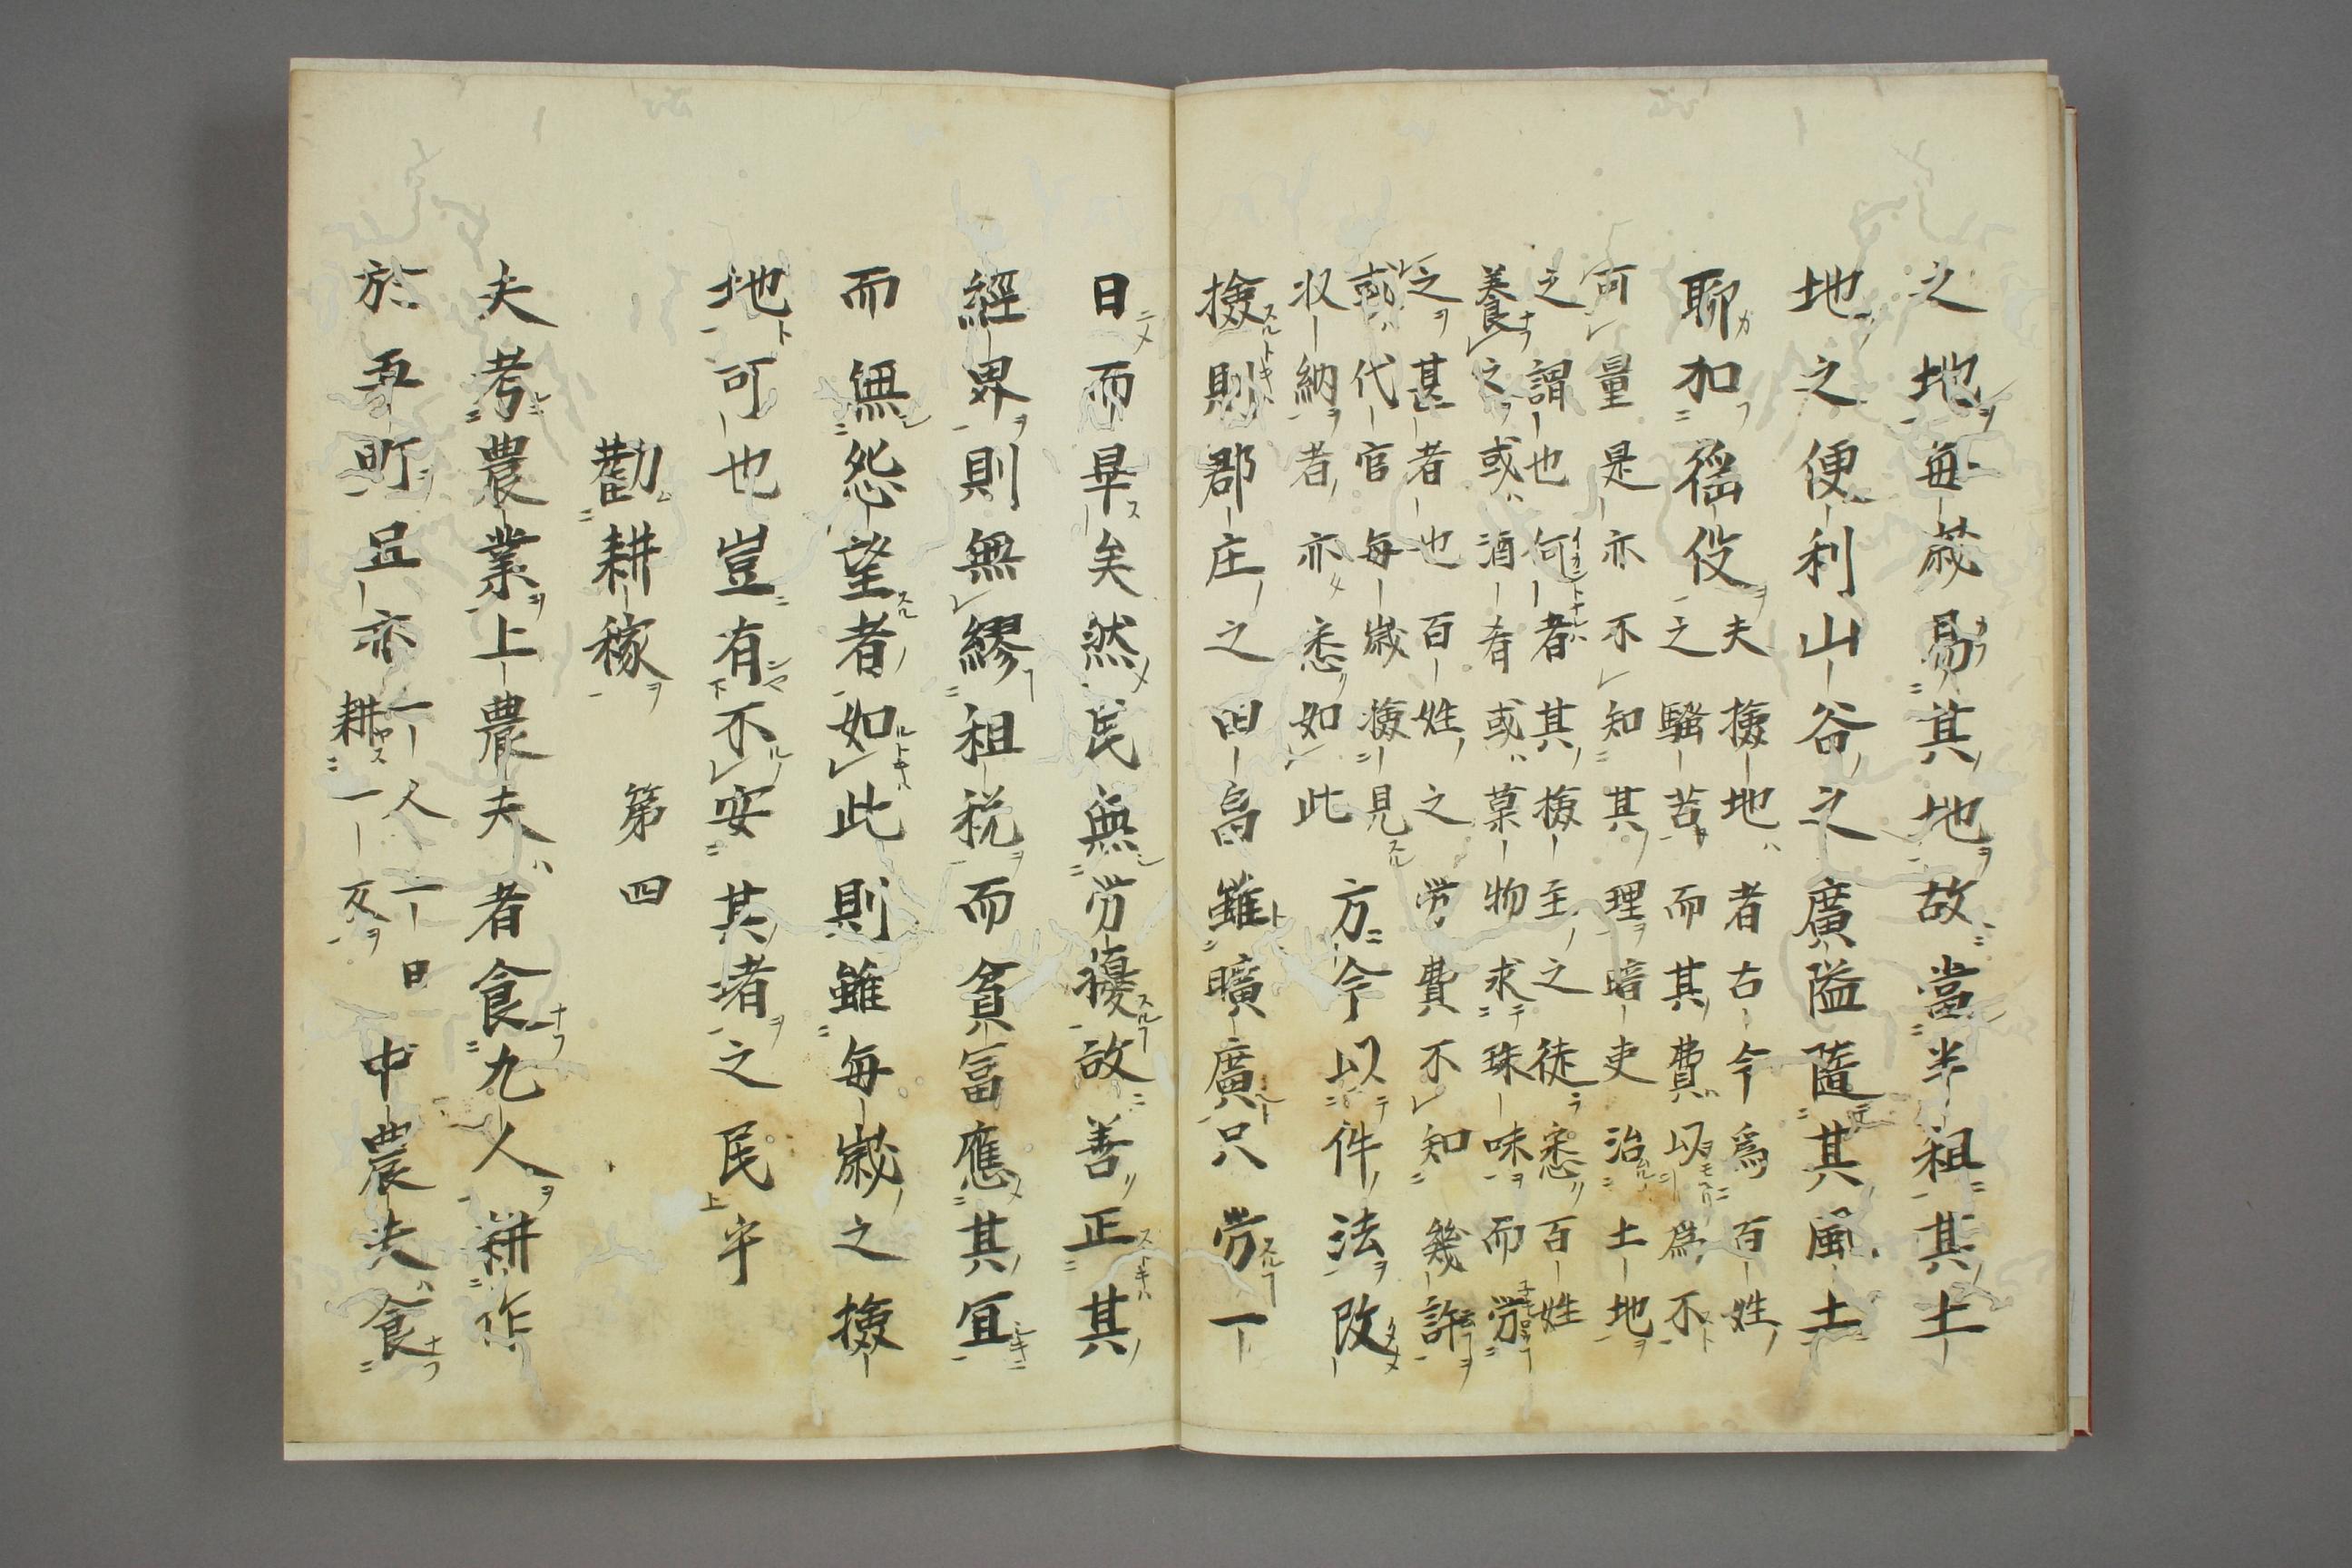 之地毎歳易其地故當半租其土
地之便利山谷之廣隘隨其風土
聊加徭役
夫撿地者古今爲百姓
之騷苦而其費以爲不
可量是亦不知其理暗吏治土地
之謂也何者其撿主之徒悉百姓
養之或酒肴或菓物求珠味而勞
之甚者也百姓之勞費不知幾許
或代官毎歳撿見
収納者亦悉如此
方今以件法改
撿則郡庄之田畠雖曠廣只勞一
日而畢矣然民無勞擾故善正其
經界則無繆租税而貧冨應其冝
而無怨望者如此則雖毎歳之撿
地可也豈有不安其堵之民乎
勸耕稼　第四
夫考農業上農夫者食九人耕作
於吾町且亦
一人一日
耕一反
中農夫食